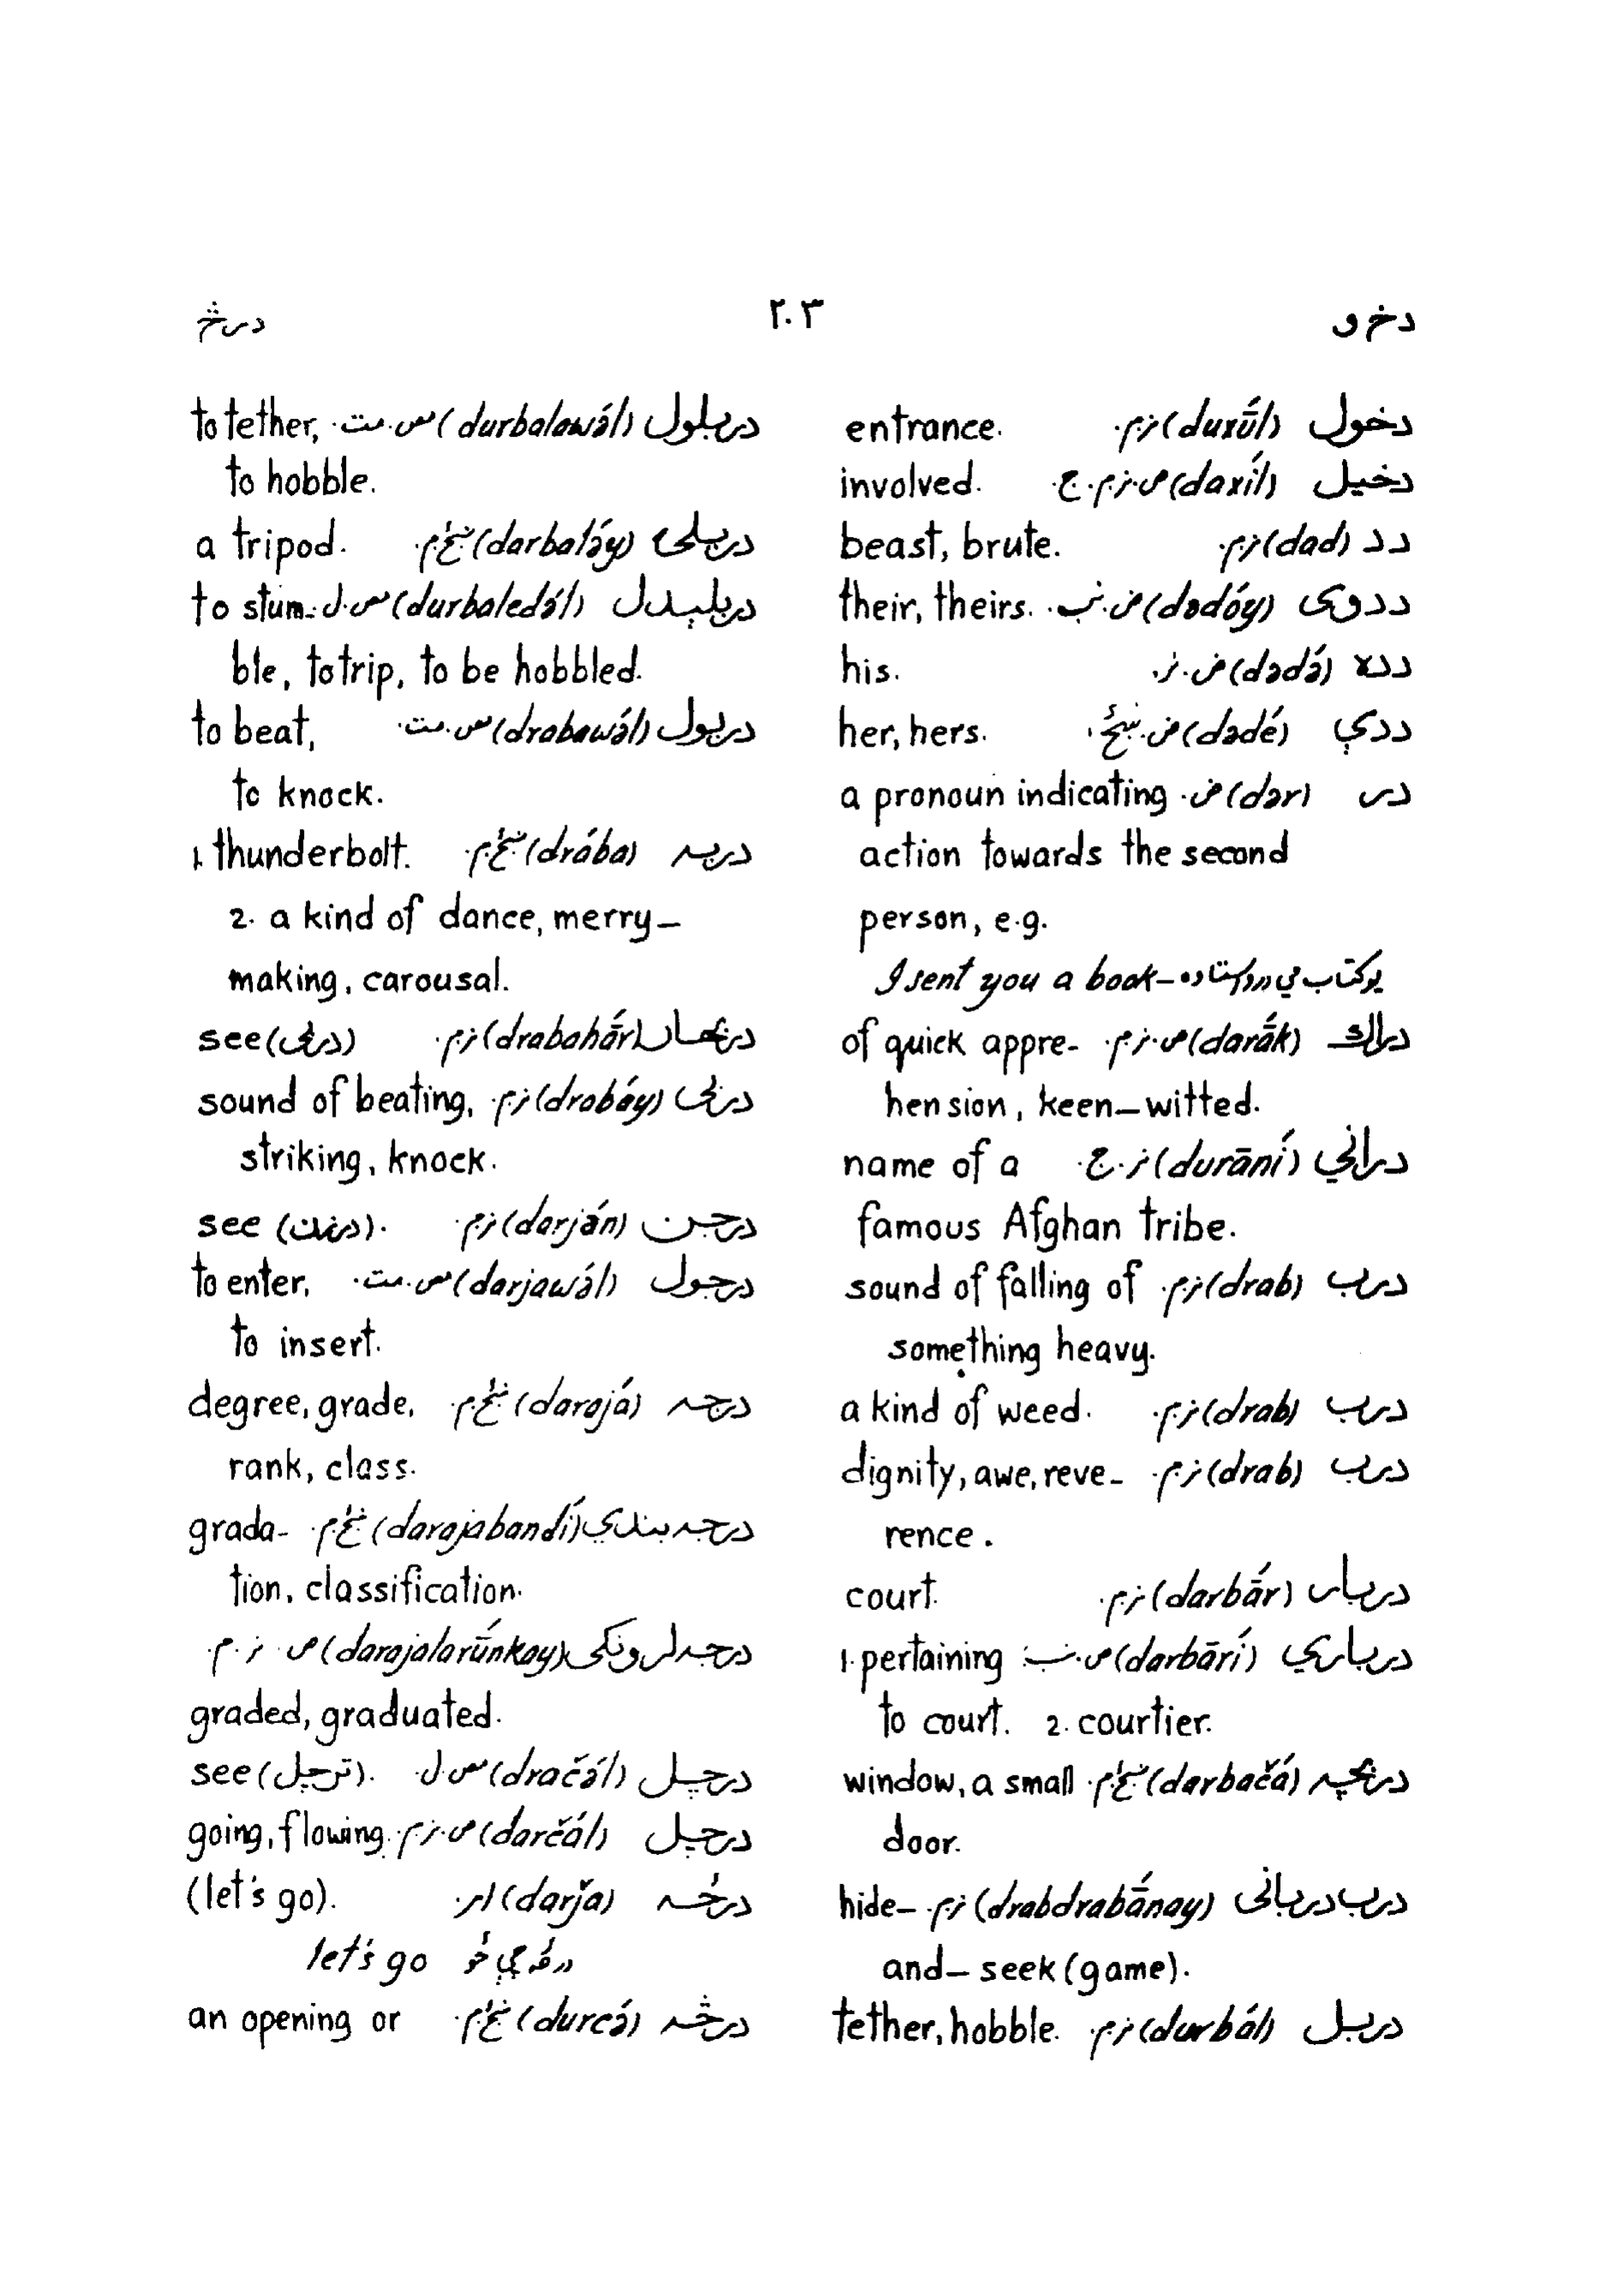 دخ و
۲۰۳
در څ
دخول (duxū́l) ن.م. entrance.
دخیل (daxíl) ص.ن.م.ج. involved.
دد (dad) ن.م. beast, brute.
ددوی (dədóy) ض.ب. their, theirs.
دده (dədə́) ض.ن. his.
ددې (dədé) ض. her, hers.
در (dər) ض. a pronoun indicating
action towards the second
person, e.g.
I sent you a book—
دراك (darā́k) ص.ن.م. of quick appre-
hension, keen-witted.
دراني (durāní) ن.ج. name of a
famous Afghan tribe.
درب (drab) ن.م. sound of falling of
something heavy.
درب (drab) ن.م. a kind of weed.
درب (drab) ن.م. dignity, awe, reve-
rence.
دربار (darbā́r) ن.م. court.
درباري (darbārí) ص.ب. 1. pertaining
to court. 2. courtier.
دربچه (darbačá) window, a small
door.
درب دربانی (drabdrabā́nay) ن.م. hide-
and-seek (game).
دربل (durbál) ن.م. tether, hobble.
دربلول (durbalawə́l) س.مت. to tether,
to hobble.
دربلۍ (darbalə́y) a tripod.
دربلېدل (durbaledə́l) س.ل. to stum-
ble, to trip, to be hobbled.
دربول (drabawə́l) س.مت. to beat,
to knock.
دربه (drába) 1. thunderbolt.
2. a kind of dance, merry-
making, carousal.
دربهار (drabahā́r) ن.م. see (دربی)
دربی (drabáy) ن.م. sound of beating,
striking, knock.
درجن (darján) ن.م. see (درزن).
درجول (darjawə́l) س.مت. to enter,
to insert.
درجه (darajá) degree, grade,
rank, class.
درجه بندي (darajabandí) grada-
tion, classification.
درجه لرونکی (darajalarū́nkay) ص ن.م.
graded, graduated.
درچل (dračə́l) س.ل. see (ترچل).
درچل (darčál) ص.ن.م. going, flowing.
درځه (darj̆a) ار (let's go).
let's go
درڅه (durcá) an opening or